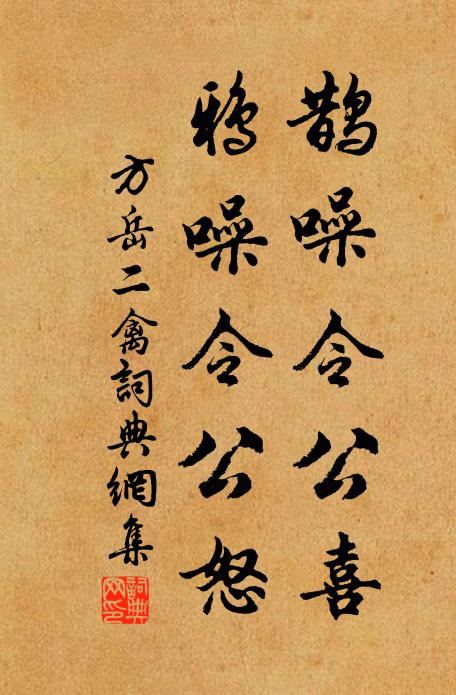 鹊噪令公喜
鸦噪令公怒
方岳二禽詞典網集
詞典網印